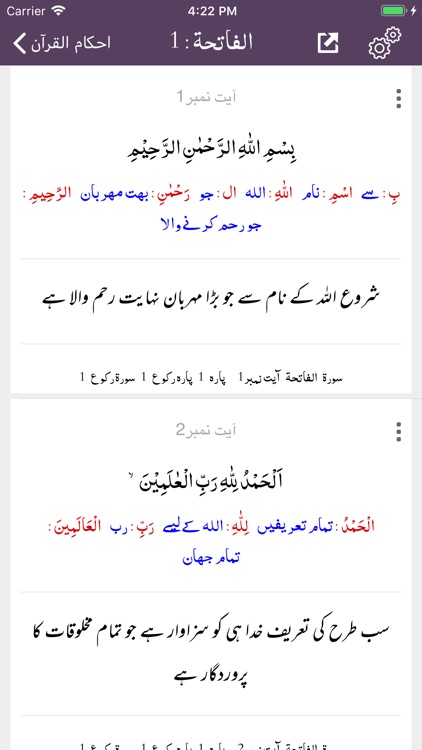 Carrier 4:22 PM
احکام القرآن الفاتحة : 1
آیت نمبر 1
بِسْمِ اللّٰهِ الرَّحْمٰنِ الرَّحِیْمِ
بِ: سے اسْمِ: نام اللّٰهِ: الله ال: جو رَحْمٰنِ: بهت مهربان الرَّحِیمِ:
جو رحم کرنے والا
شروع اللہ کے نام سے جو بڑا مہربان نہایت رحم والا ہے
سورة الفاتحة آیت نمبر 1 پاره 1 پاره رکوع 1 سورة رکوع 1
آیت نمبر 2
اَلْحَمْدُ لِلّٰهِ رَبِّ الْعٰلَمِیْنَ ۙ
الْحَمْدُ: تمام تعریفیں لِلّٰهِ: الله کے لیے رَبِّ: رب الْعَالَمِینَ:
تمام جهان
سب طرح کی تعریف خدا ہی کو سزاوار ہے جو تمام مخلوقات کا
پروردگار ہے